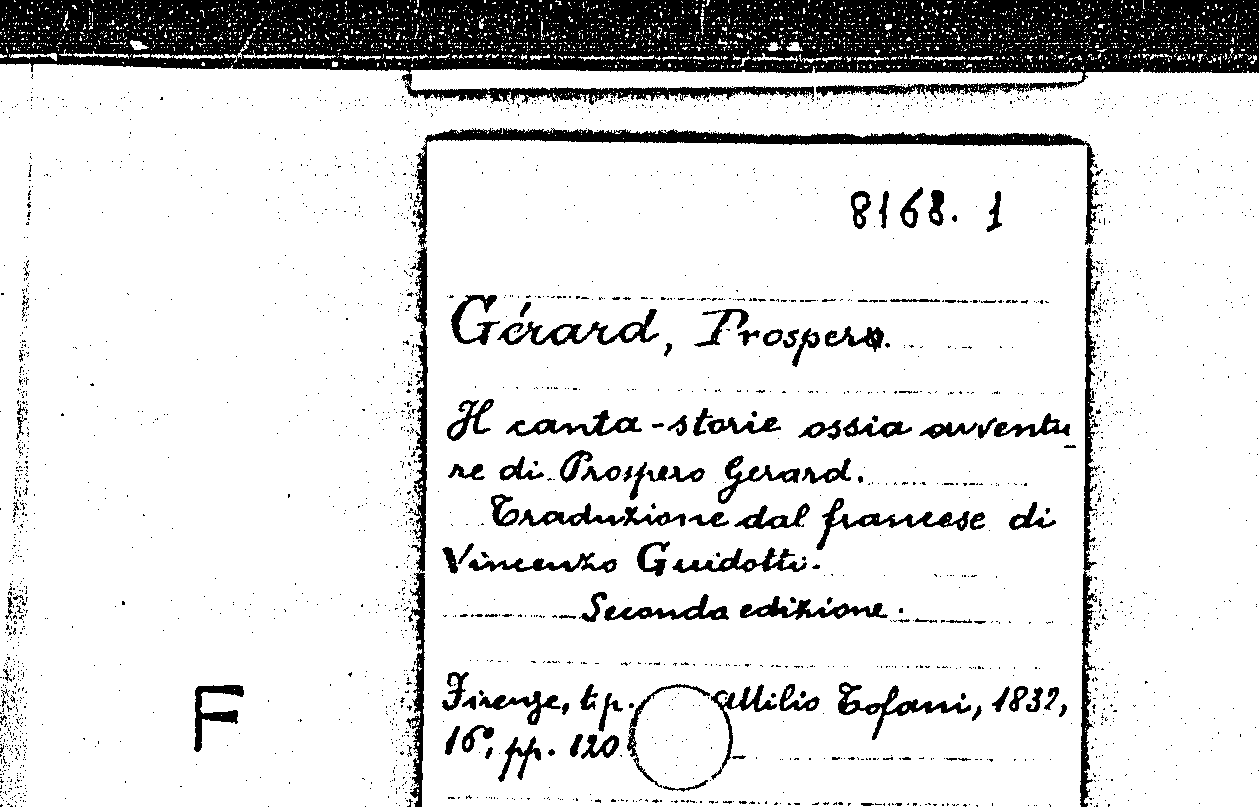 8168. 1
Gérard, Prospero.
Il canta-storie ossia avventu
re di Prospero Gerard.
Traduzione dal francese di
Vincenzo Guidotti.
Seconda edizione.
Firenze, tip. Attilio Tofani, 1832,
F
16°, pp. 120